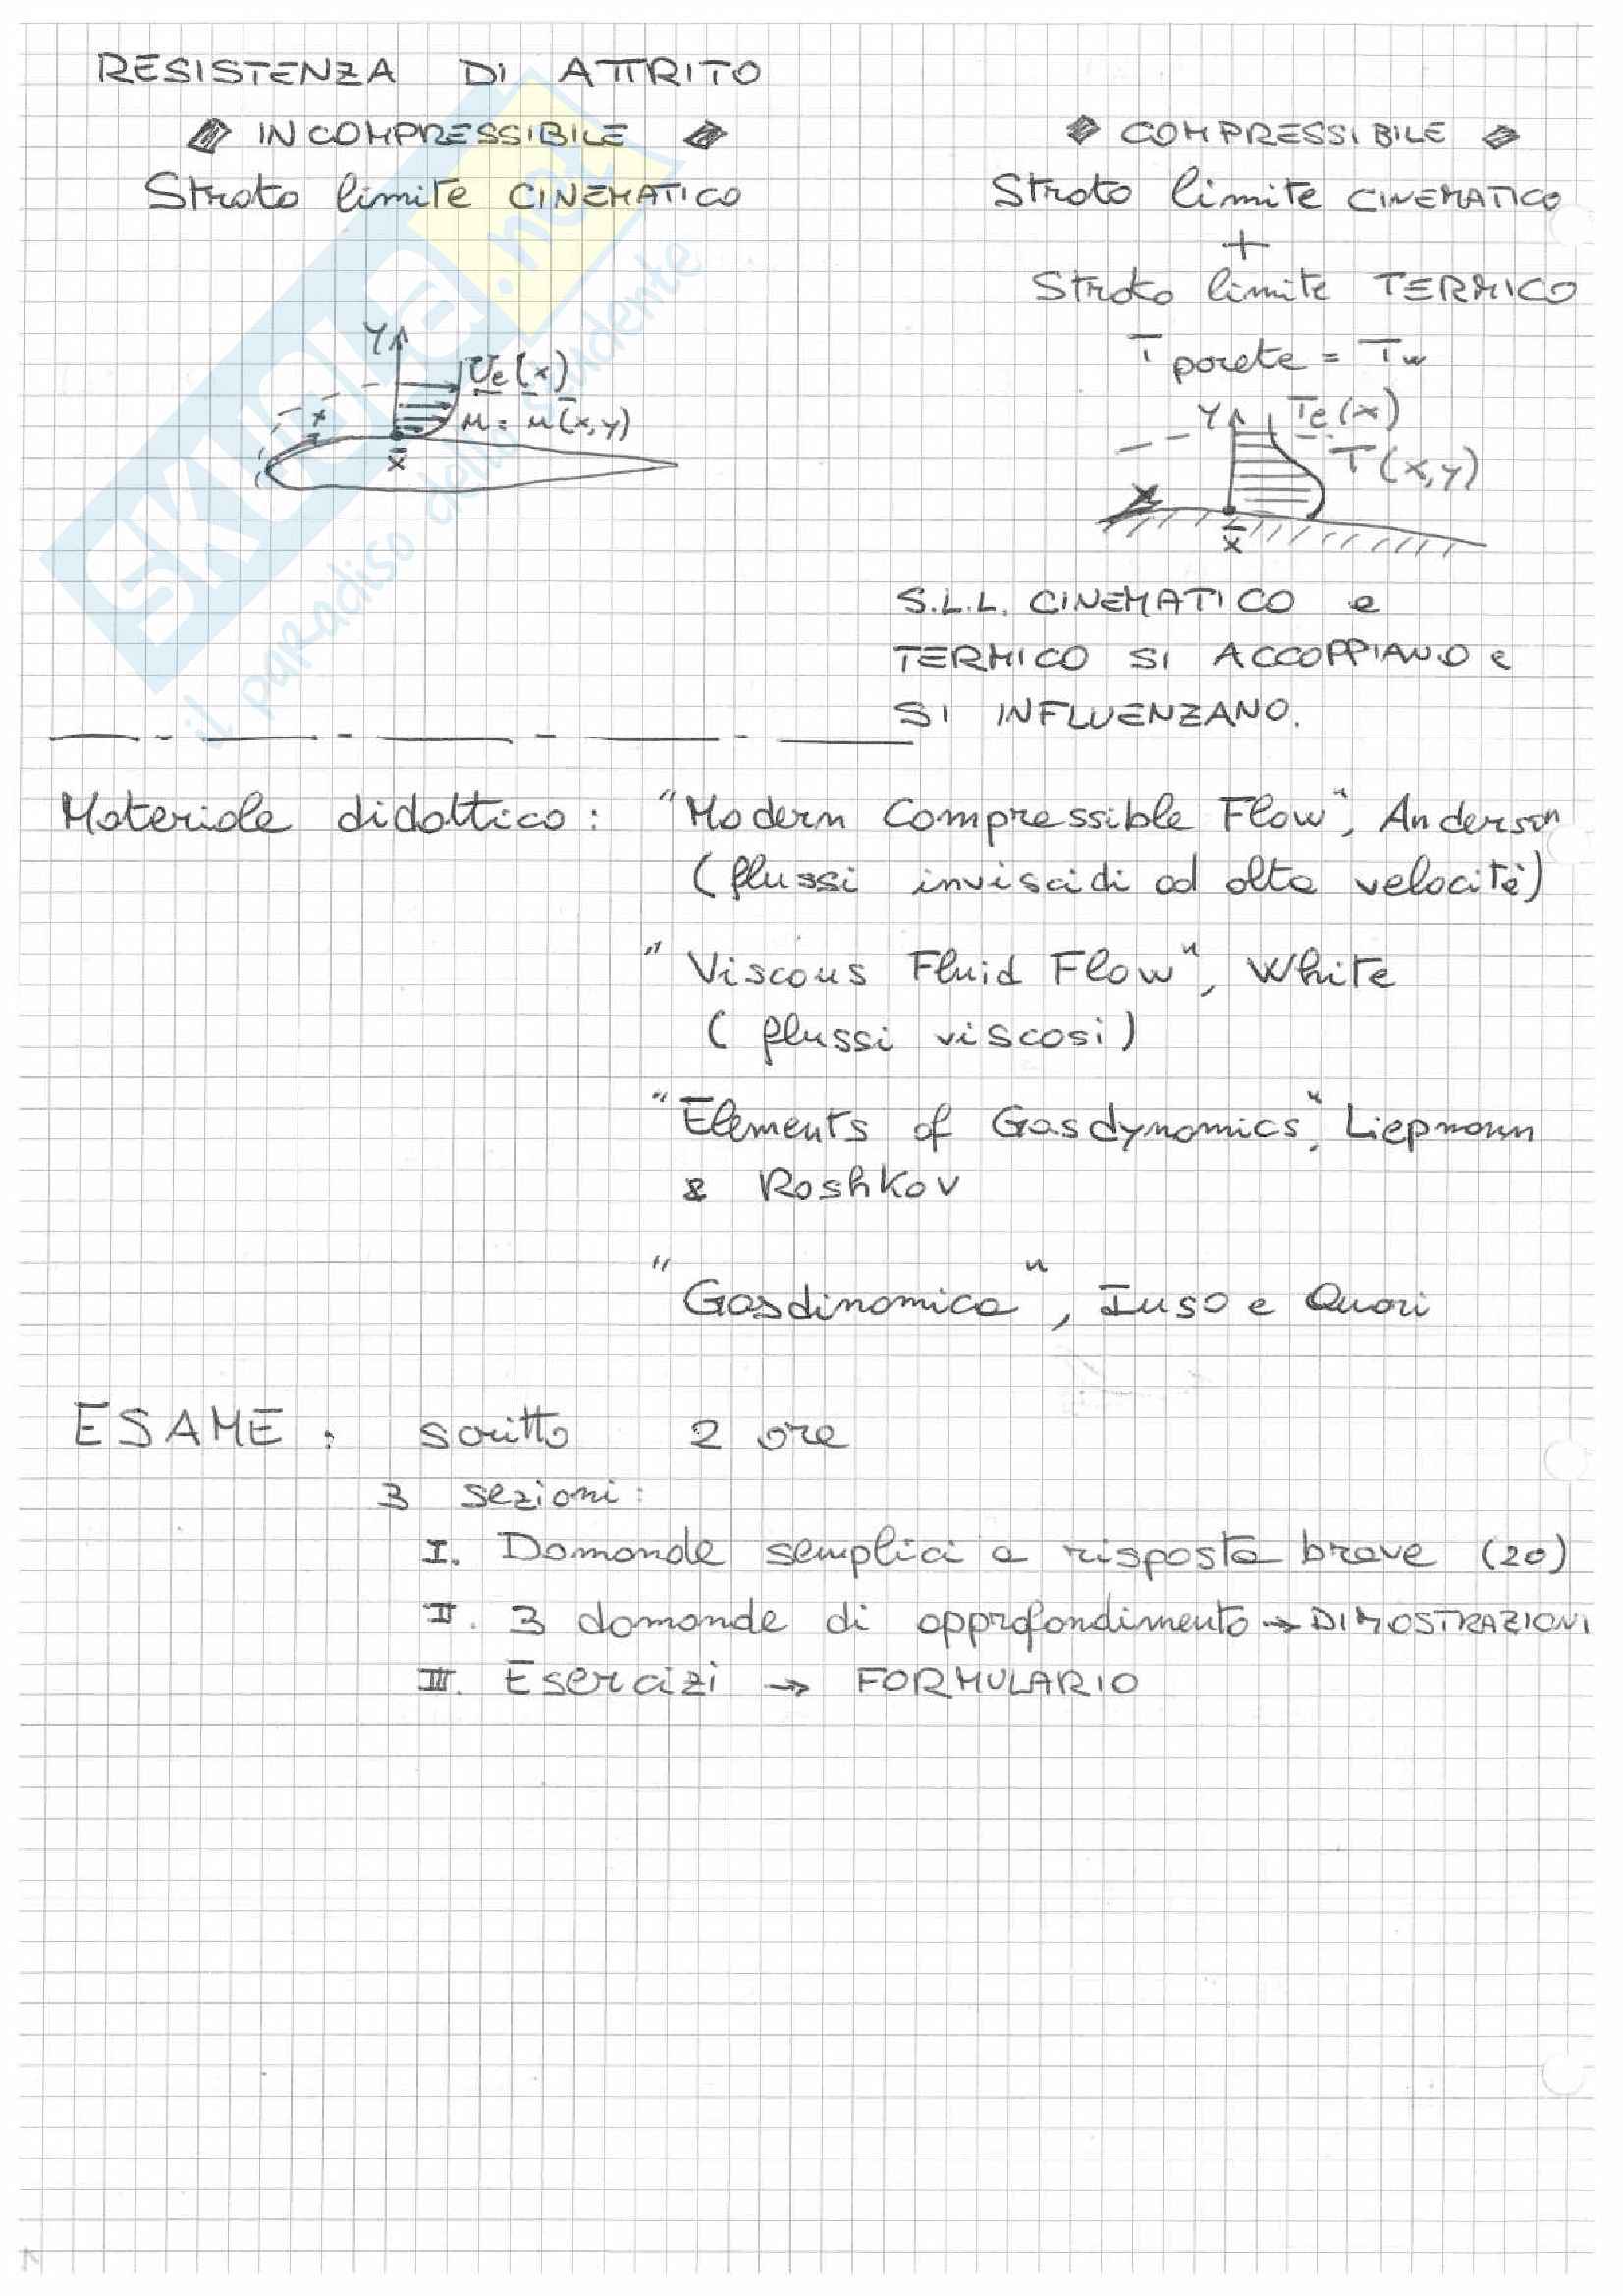 RESISTENZA DI ATTRITO
INCOMPRESSIBILE
Strato limite CINEMATICO
Y
Ue(x)
u = u(x,y)
x
x̄
COMPRESSIBILE
Strato limite CINEMATICO
+
Strato limite TERMICO
T parete = Tw
Y
Te(x)
T(x,y)
x
x̄
S.L.L. CINEMATICO e
TERMICO SI ACCOPPIANO e
SI INFLUENZANO.
Materiale didattico: "Modern Compressible Flow", Anderson
(flussi inviscidi ad alta velocità)
"Viscous Fluid Flow", White
(flussi viscosi)
"Elements of Gasdynamics", Liepmann
& Roshkov
"Gasdinamica", Iuso e Quori
ESAME: scritto 2 ore
3 sezioni:
I. Domande semplici a risposta breve (20)
II. 3 domande di approfondimento → DIMOSTRAZIONI
III. Esercizi → FORMULARIO
SKUOLA.net
il paradiso dello studente